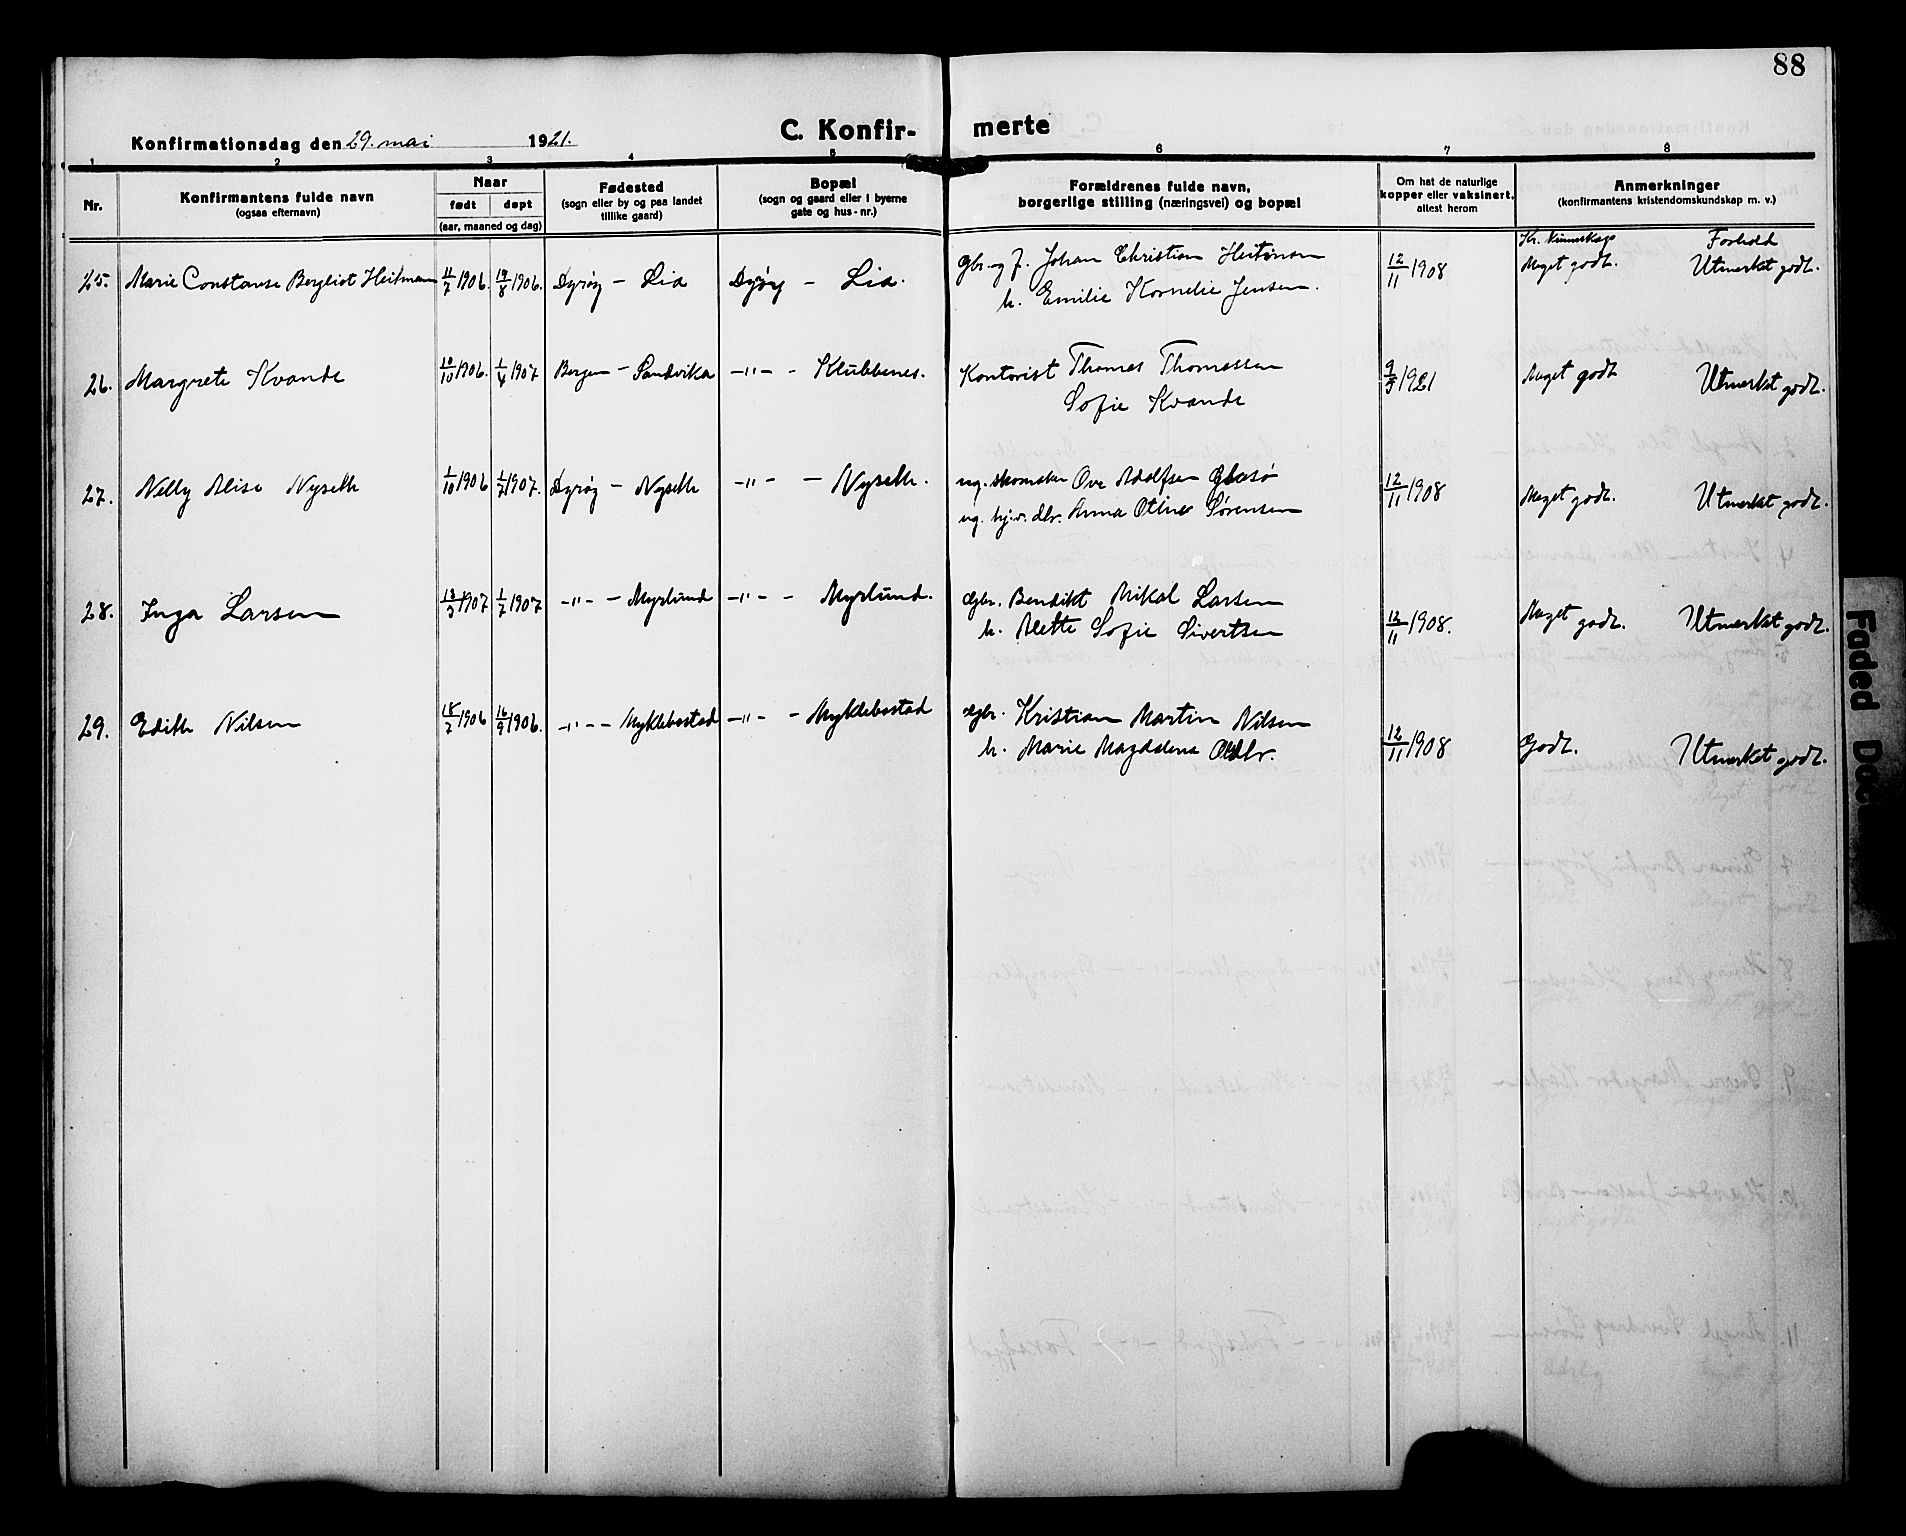 88
C. Konfir- merte
Konfirmationsdag den 29. mai 1921.
1 2 3 4 5 6 7 8
Nr.
Konfirmantens fulde navn
(ogsaa efternavn)
Naar
født døpt
(aar, maaned og dag)
Fødested
(sogn eller by og paa landet
tillike gaard)
Bopæl
(sogn og gaard eller i byerne
gate og hus-nr.)
Forældrenes fulde navn,
borgerlige stilling (næringsvei) og bopæl
Om hat de naturlige
kopper eller vaksinert,
attest herom
Anmerkninger
(konfirmantens kristendomskundskap m. v.)
Kr. Kunnskap Forhold
25. Marie Constanse Bergliot Heitmann 11/7 1906. 19/8 1906. Dyrøy – Lia Dyrøy – Lia. Gbr. og f. Johan Christian Heitman 12/11 1908 Meget godt. Utmerket godt.
h. Emilie Kornelie Jensen.
26. Margrete Kvande 10/10 1906. 1/4 1907 Bergen – Sandvika –"– – Klubbenes. Kontorist Thomas Thomassen 9/5 1921 Meget godt Utmerket godt.
Sofie Kvande
27. Nelly Alise Nyseth 1/10 1906 1/7 1907. Dyrøy – Nyseth –"– – Nyseth. ug. skomaker Ove Adolfsen Glosø 12/11 1908 Meget godt. Utmerket godt.
ug. hj.v. dtr. Anna Otline Sørensen
28. Inga Larsen 13/3 1907 1/7 1907 –"– – Myrlund –"– – Myrlund. Gbr. Bendikt Mikal Larsen 12/11 1908. Meget godt. Utmerket godt.
h. Mette Sofie Sivertsen
29. Edith Nilsen 18/7 1906 16/9 1906. –"– – Myklebostad –"– – Myklebostad Gbr. Kristian Martin Nilsen 12/11 1908 Godt. Utmerket godt.
h. Marie Magdalena
Faded Doc